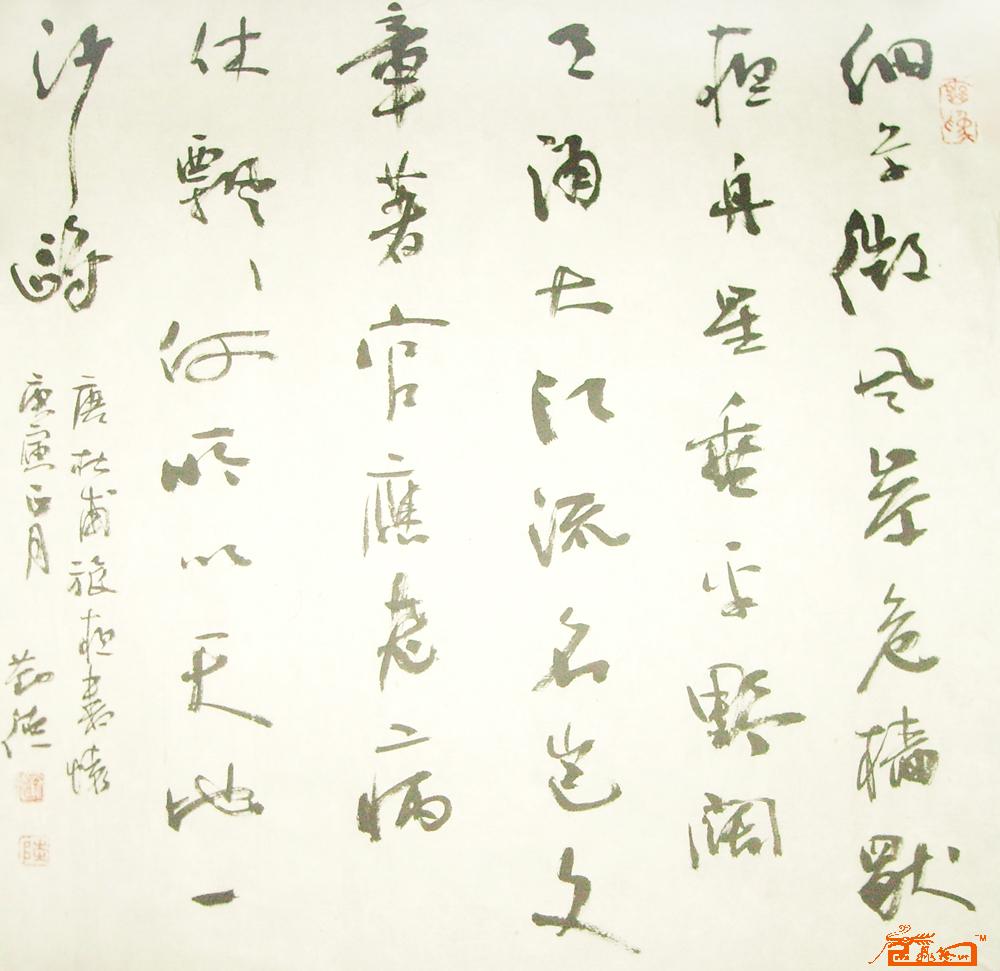 細草微風岸危檣獨
夜舟星垂平野闊
月涌大江流名豈文
章著官應老病
休飄〻何所似天地一
沙鷗
唐杜甫旅夜書懷
庚寅正月